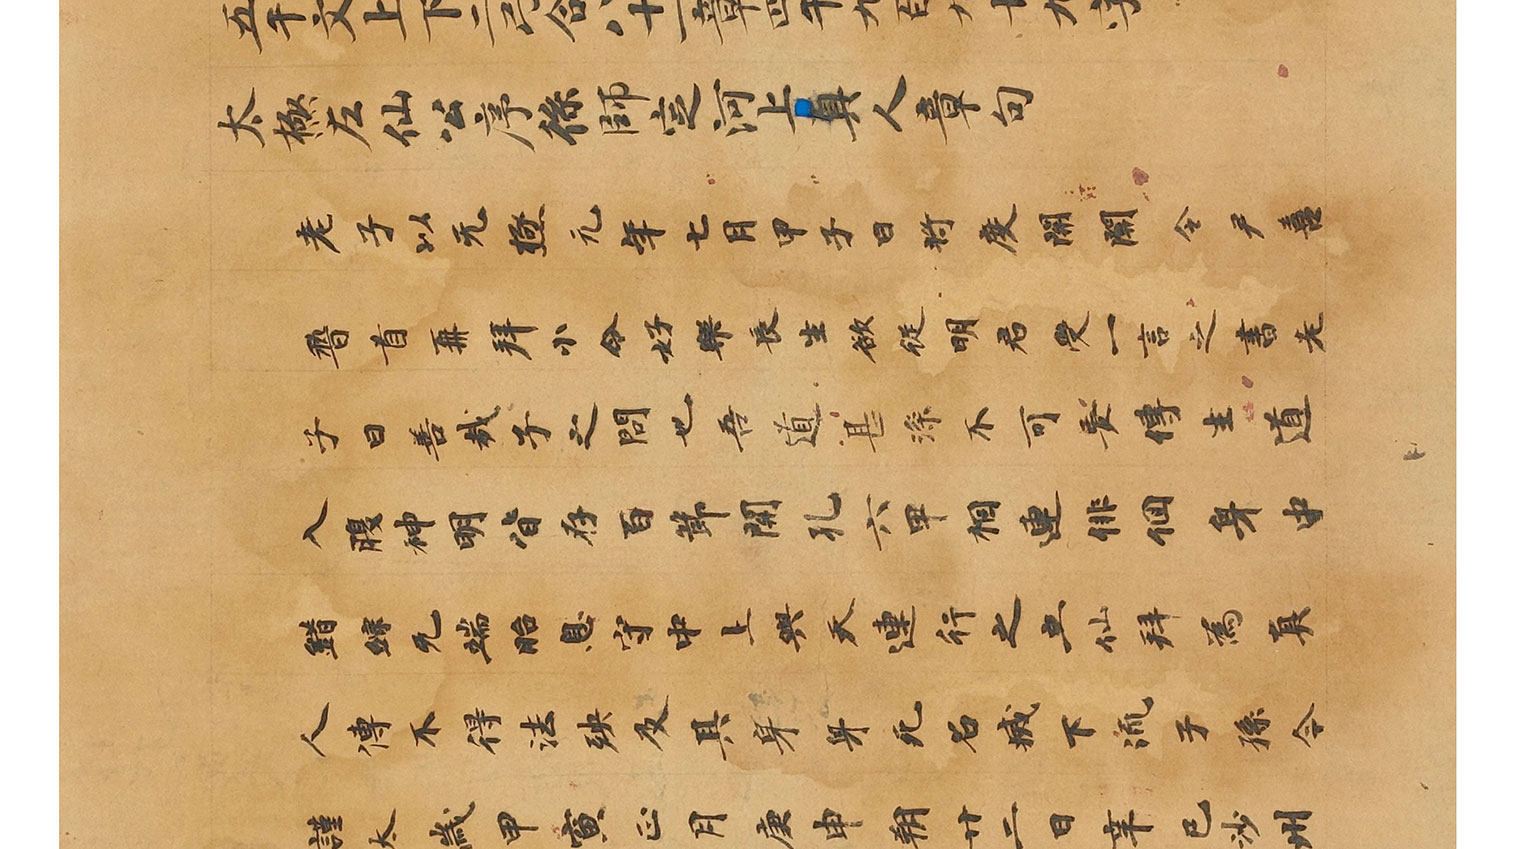 五千文上下二弓合八十一章四千九百九十九字
太極左仙公序係師定河上真人章句
老子以无極元年七月甲子日將度關關令尹喜
稽首再拜小令好樂長生欲從明君受一言之書老
子曰善哉子之問也吾道甚深不可妄傳生道
入腹神明皆存百節開孔六甲相連徘徊身中
錯綜无端胎息守中上與天連行之立仙拜為真
人傳不得法殃及其身身死名滅下流子孫令
謹太歲甲寅正月庚申朔廿二日辛巳沙州